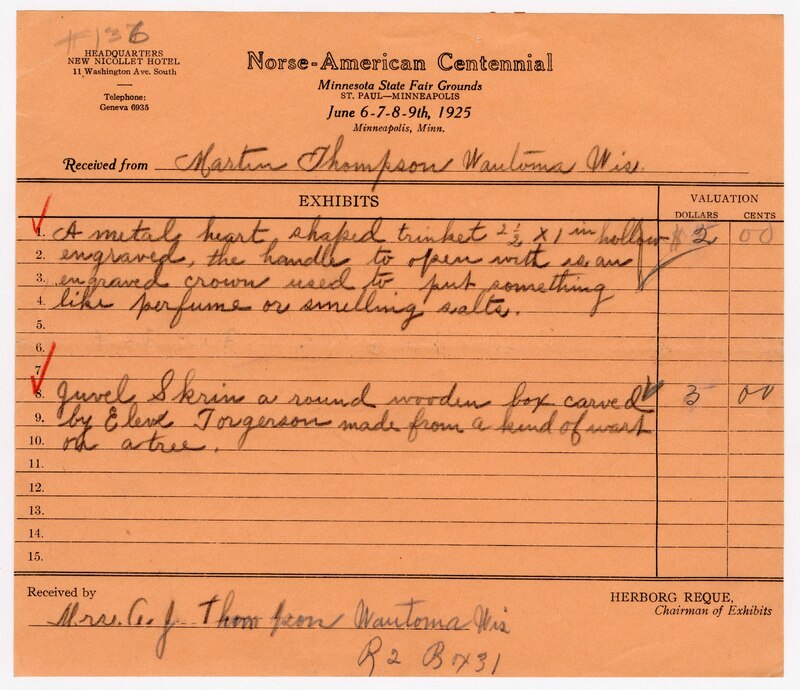 #136
HEADQUARTERS
NEW NICOLLET HOTEL
11 Washington Ave. South
Telephone:
Geneva 6935
Norse-American Centennial
Minnesota State Fair Grounds
ST. PAUL—MINNEAPOLIS
June 6-7-8-9th, 1925
Minneapolis, Minn.
Received from Martin Thompson Wautoma Wis.
EXHIBITS VALUATION
DOLLARS CENTS
1. A metal heart shaped trinket 2 1/2 x 1 in hollow $2 00
2. engraved, the handle to open with is an
3. engraved crown used to put something
4. like perfume or smelling salts.
5.
6.
7.
8. Juvel Skrin a round wooden box carved 5 00
9. by Torgerson made from a kind of wart
10. on a tree.
11.
12.
13.
14.
15.
Received by
Mrs. J Thompson Wautoma Wis
R2 Box 31
HERBORG REQUE,
Chairman of Exhibits